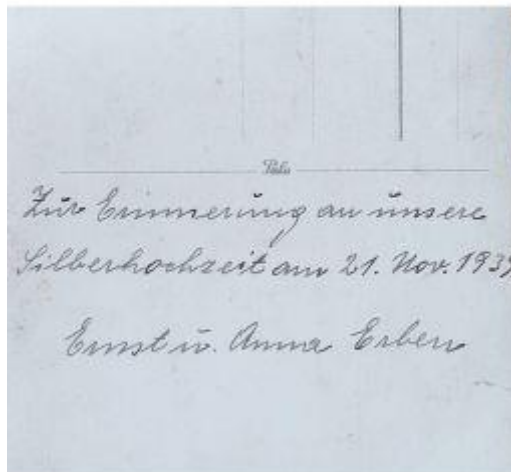 Zur Erinnerung an unsere
Silberhochzeit am 21. Nov. 1939
Ernst u. Anna Erben